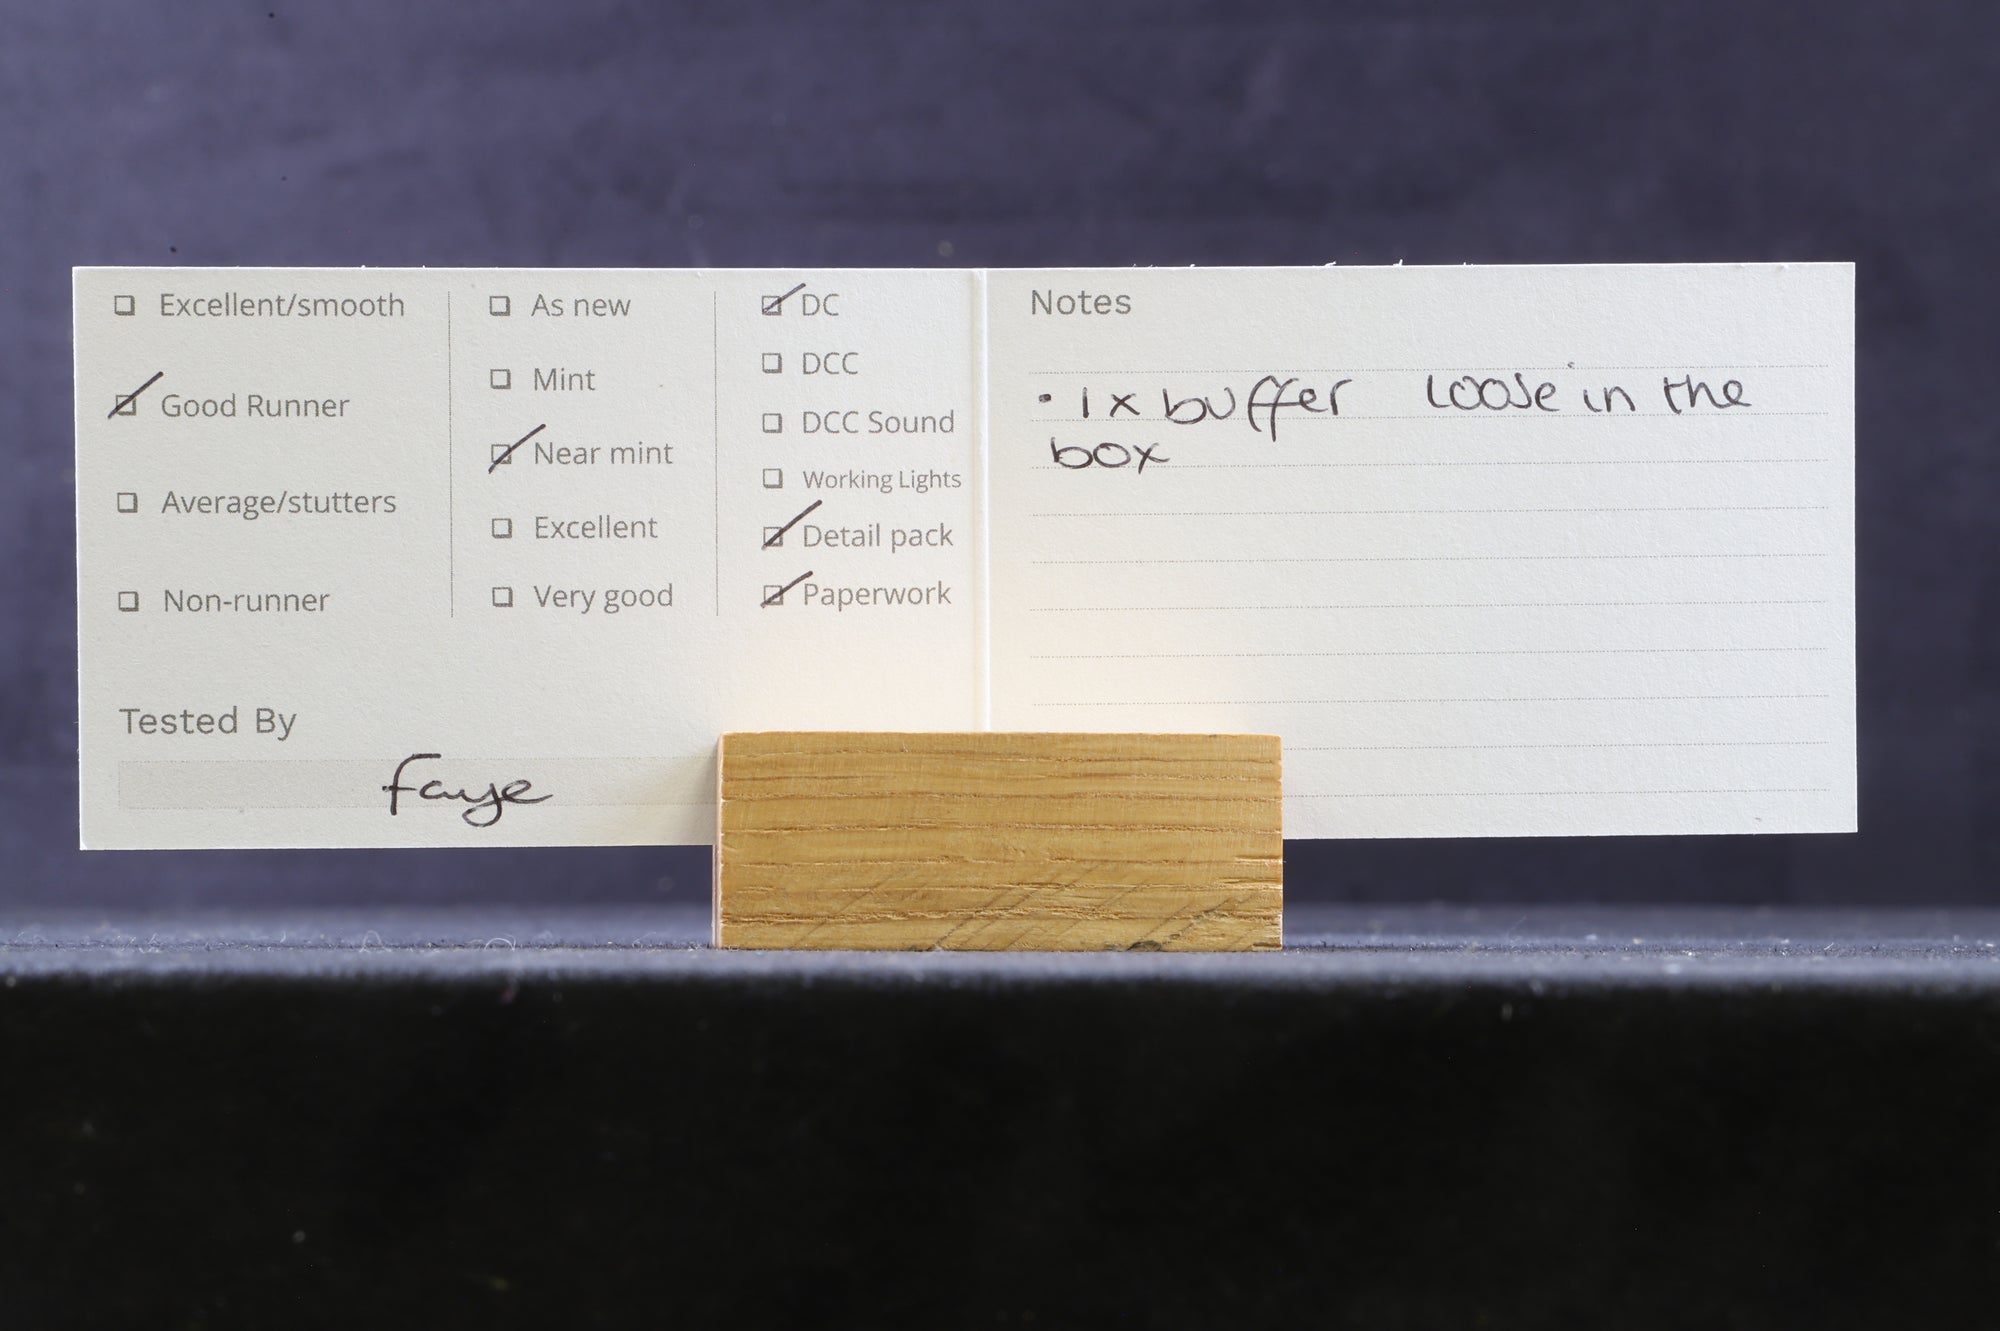 ☐ Excellent/smooth
☑ Good Runner
☐ Average/stutters
☐ Non-runner
☐ As new
☐ Mint
☑ Near mint
☐ Excellent
☐ Very good
☑ DC
☐ DCC
☐ DCC Sound
☐ Working Lights
☑ Detail pack
☑ Paperwork
Tested By
Faye
Notes
• 1x buffer loose in the
box